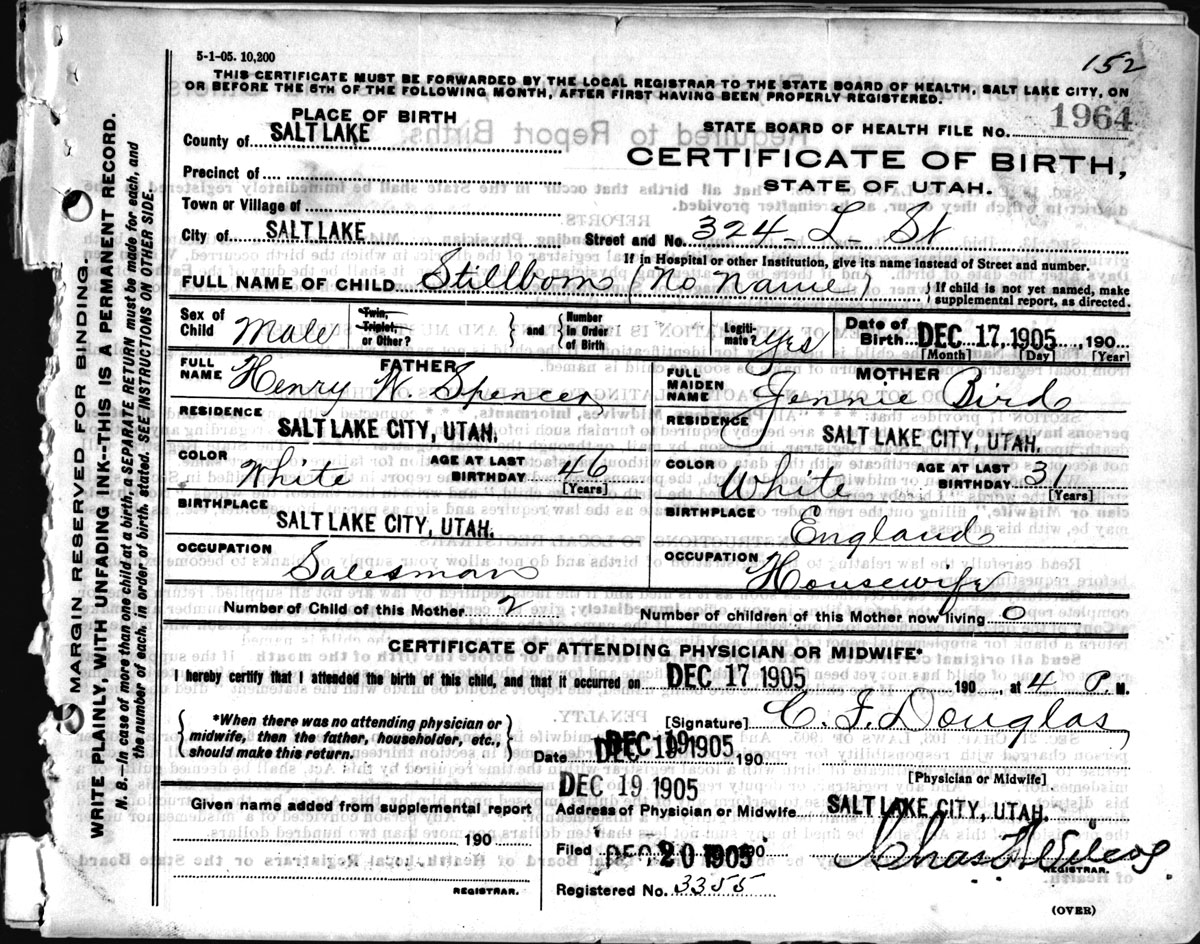 5-1-05. 10,200
152
THIS CERTIFICATE MUST BE FORWARDED BY THE LOCAL REGISTRAR TO THE STATE BOARD OF HEALTH, SALT LAKE CITY, ON
OR BEFORE THE 5TH OF THE FOLLOWING MONTH, AFTER FIRST HAVING BEEN PROPERLY REGISTERED.
PLACE OF BIRTH
County of SALT LAKE
Precinct of
Town or Village of
City of SALT LAKE
STATE BOARD OF HEALTH FILE NO. 1964
CERTIFICATE OF BIRTH,
STATE OF UTAH.
Street and No. 324 - L - St
If in Hospital or other Institution, give its name instead of Street and number.
FULL NAME OF CHILD Stillborn (No Name) } If child is not yet named, make supplemental report, as directed.
Sex of Child Male Twin, Triplet, or Other? } and { Number in Order of Birth Legitimate? Yes Date of Birth DEC 17, 1905, 190
[Month] [Day] [Year]
FATHER
FULL NAME Henry W. Spencer
RESIDENCE
SALT LAKE CITY, UTAH.
COLOR White AGE AT LAST BIRTHDAY 46
[Years]
BIRTHPLACE
SALT LAKE CITY, UTAH.
OCCUPATION Salesman
MOTHER
FULL MAIDEN NAME Jennie Bird
RESIDENCE
SALT LAKE CITY, UTAH.
COLOR White AGE AT LAST BIRTHDAY 31
[Years]
BIRTHPLACE
England
OCCUPATION Housewife
Number of Child of this Mother 2 Number of children of this Mother now living 0
CERTIFICATE OF ATTENDING PHYSICIAN OR MIDWIFE*
I hereby certify that I attended the birth of this child, and that it occurred on DEC 17 1905 190 , at 4 P. M.
{ *When there was no attending physician or
midwife, then the father, householder, etc.,
should make this return. }
[Signature] C. F. Douglas,
Date DEC 19 1905 190
[Physician or Midwife]
DEC 19 1905
Given name added from supplemental report
190
REGISTRAR.
Address of Physician or Midwife SALT LAKE CITY, UTAH.
Filed DEC 20 1905 190
REGISTRAR.
Registered No. 3355
(OVER)
MARGIN RESERVED FOR BINDING.
WRITE PLAINLY, WITH UNFADING INK--THIS IS A PERMANENT RECORD.
N. B.—In case of more than one child at a birth, a SEPARATE RETURN must be made for each, and
the number of each, in order of birth, stated. SEE INSTRUCTIONS ON OTHER SIDE.